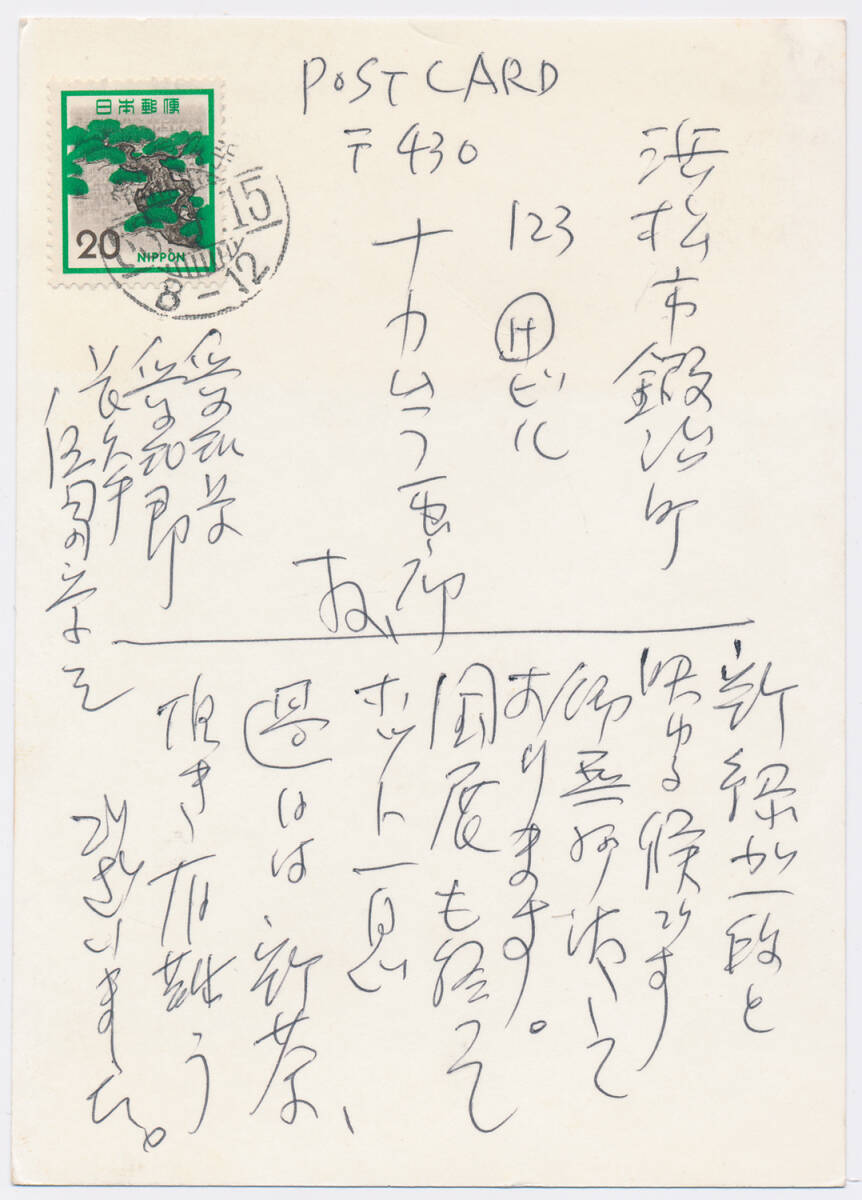 POST CARD
日本郵便
20
NIPPON
15
8-12
〒430
浜松市鍛冶町
123
Ⓗ田ビル
画廊
愛知県
愛知郡
長久手
新緑が一段と
映ゆる候です
御無沙汰して
おります。
国展も終って
ホット一息
過日は新茶、
頂き有難う
ございました。